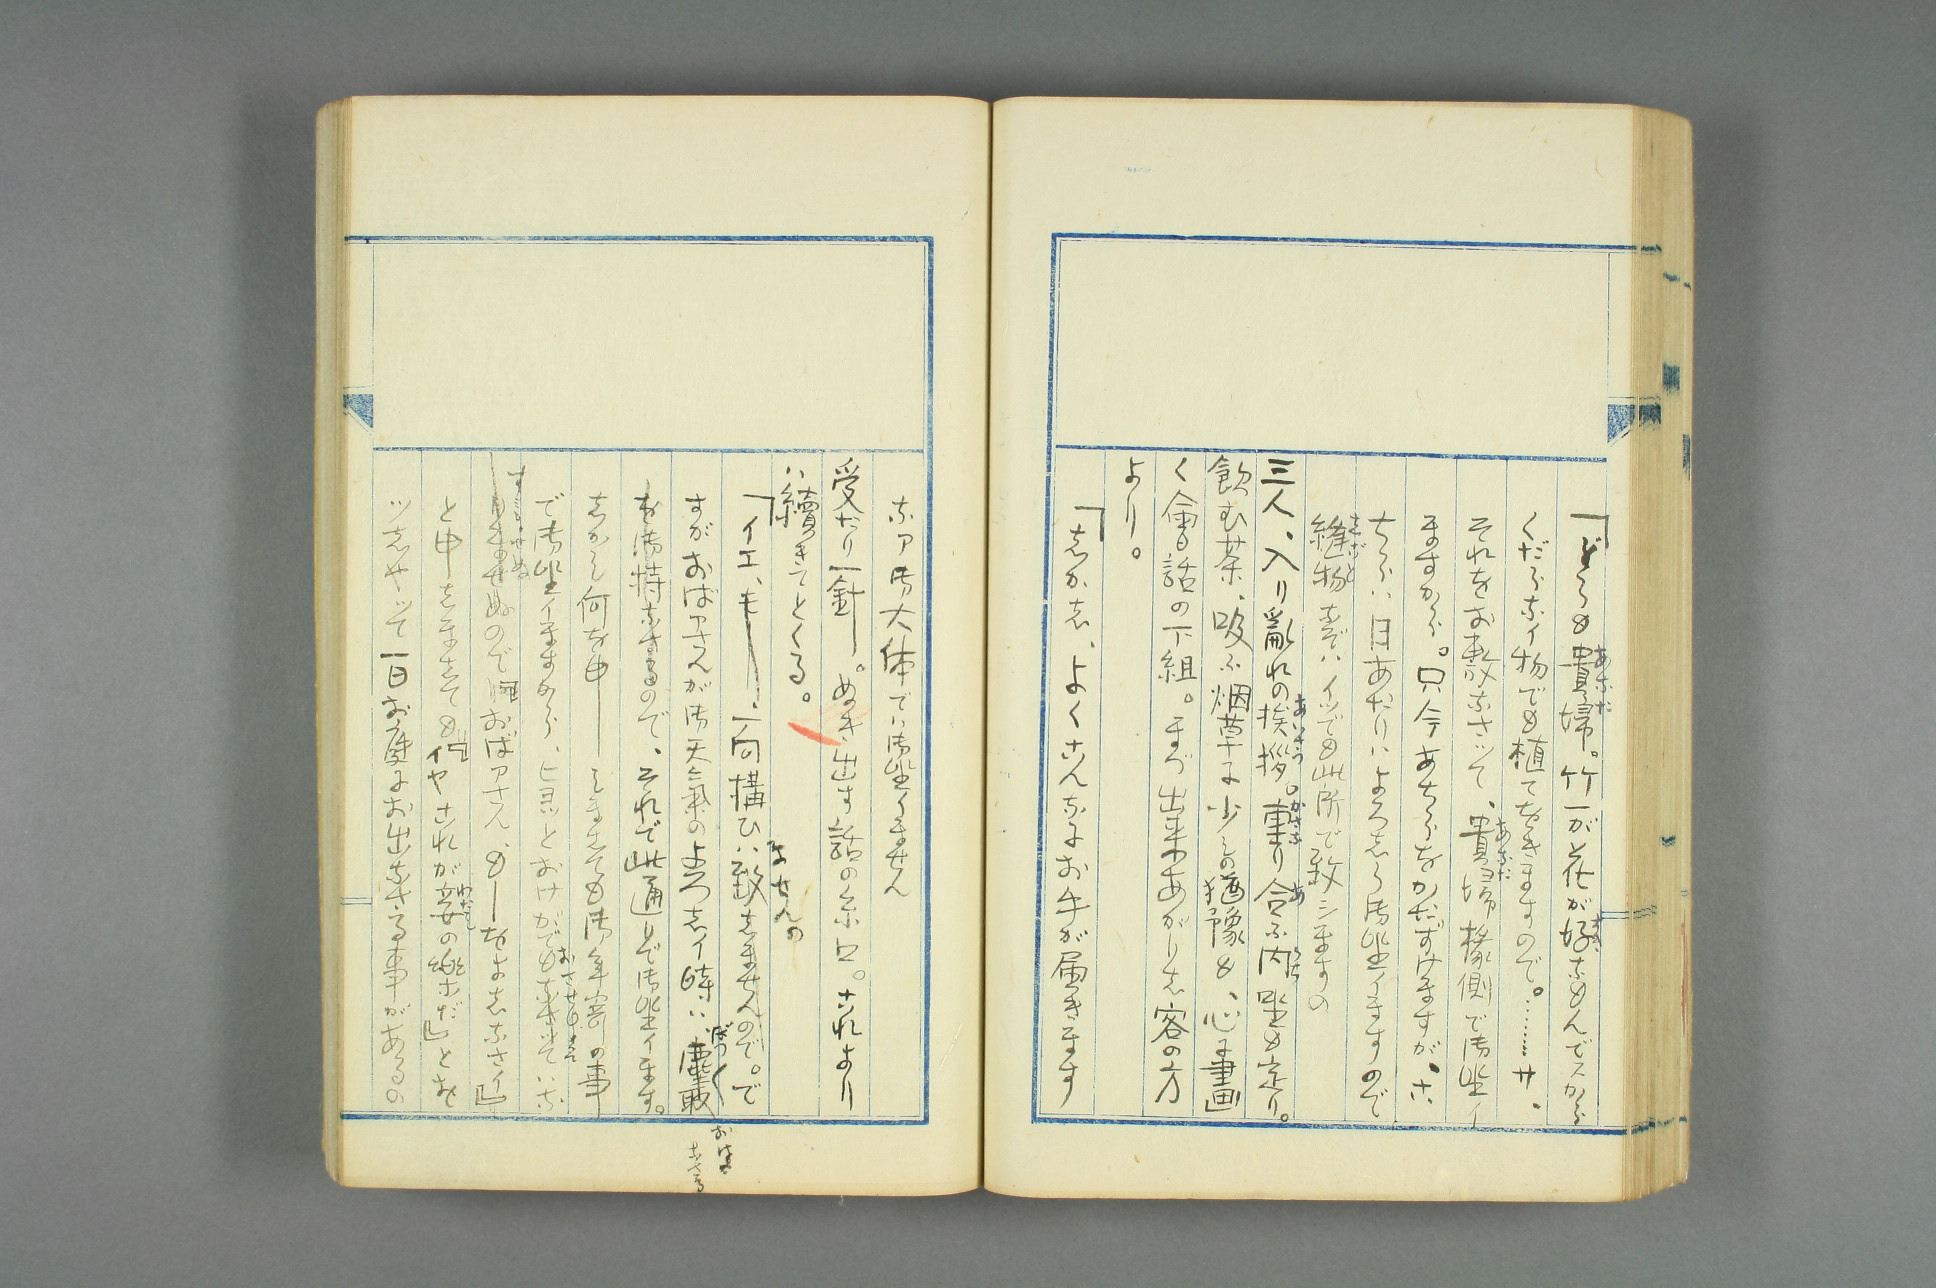 「どうも貴婦。竹一が花が好なもんでスから
くだらなイ物でも植ておきますので。……サ、
それをお敷なさツて、貴婦椽側で御坐イ
ますから。只今あちらをかたずけますが、コ
ちらハ日あたりハよろしう御坐イますので
縫物などハイツでも此所で致シますの
三人、入り亂れの挨拶。重り合ふ内坐も定り。
飲む茶、吸ふ烟草に少しの猶豫も、心に画
く會話の下組。まづ出来あがりし客の方
より。
「しかし、よくこんなにお手が届きます
なア御大体でハ御坐イません
受たり一針。ぬき出す話の糸口。これより
ハ續きてとくる。
「イエ、もー、一向構ひハ致しませんので。で
すがおばアさんが御天氣のよろしイ時ハ、塵取
を御持なさるので、それで此通りで御坐イます。
しかし何を申ー しましても御年寄の事
で御坐イますから、ヒヨツとおけがでもなさツてハな
りませぬのでおばアさん、もーおよしなさイ』
と申しましても『イヤこれが妾の樂だ』とお
ツしやツて一日お庭にお出なさる事があるの